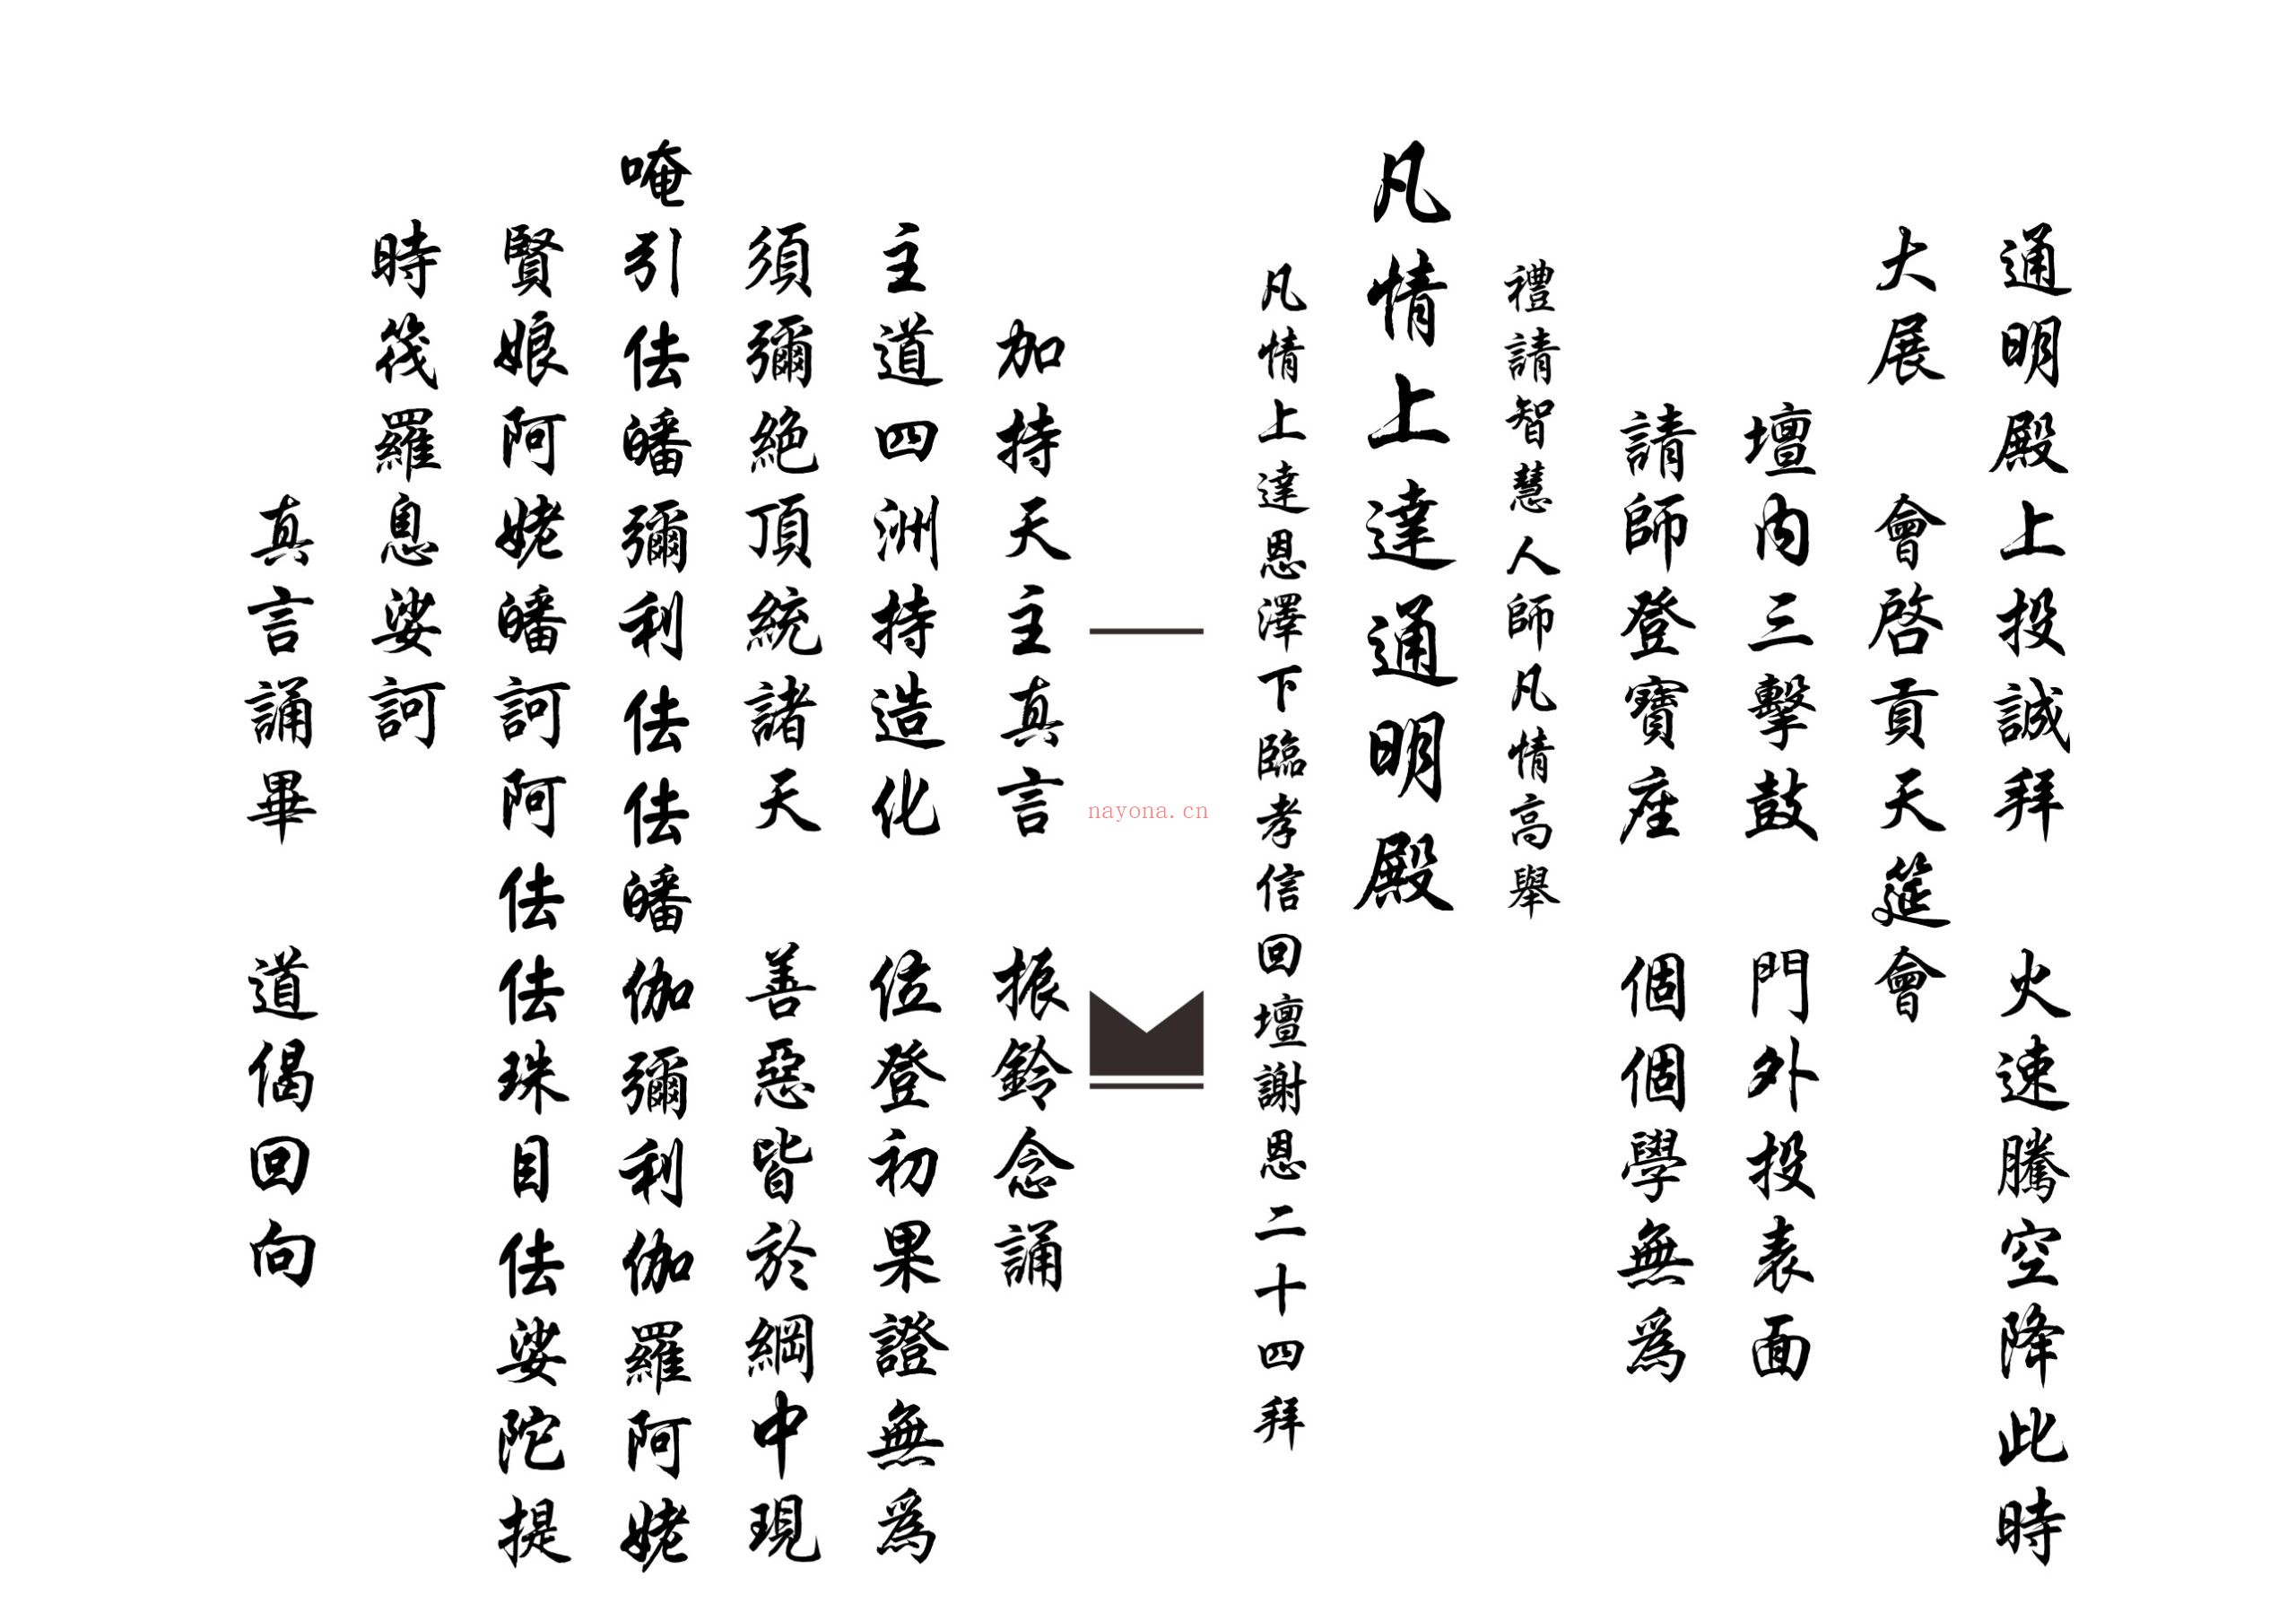 通明殿上投誠拜　火速騰空降此時
大展　會啓貢天筵會
壇内三擊鼓　門外投表面
請師登寶座　個個學無為
禮請智慧人師凡情高舉
凡情上達通明殿
凡情上達恩澤下臨孝信回壇謝恩二十四拜
nayona.cn
加持天主真言　振鈴念誦
主道四洲持造化　位登初果證無為
須彌絕頂統諸天　善惡皆於綱中現
唵引佉皤彌利佉佉皤伽彌利伽羅阿姥
賢娘阿姥皤訶阿佉佉珠目佉娑陀提
時筏羅息娑訶
真言誦畢　道偈回向